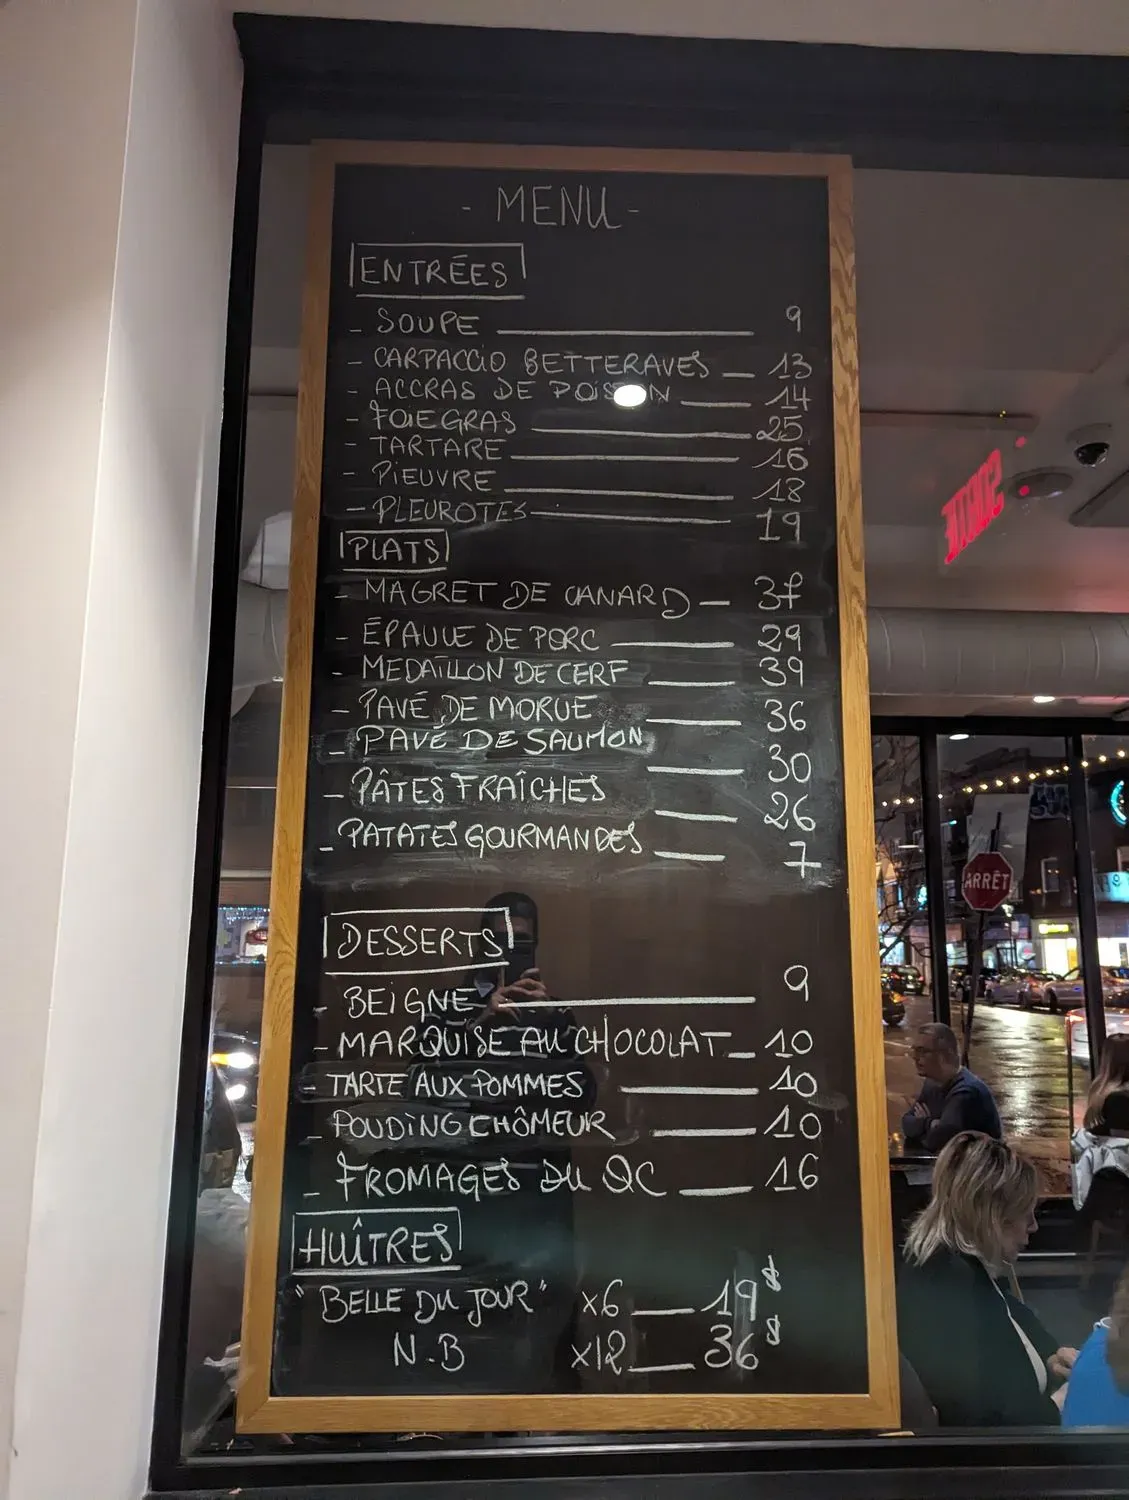 - MENU -
ENTRÉES
- SOUPE 9
- CARPACCIO BETTERAVES 13
- ACCRAS DE POISSON 14
- FOIE GRAS 25
- TARTARE 16
- PIEUVRE 18
- PLEUROTES 19
PLATS
- MAGRET DE CANARD 37
- ÉPAULE DE PORC 29
- MEDAILLON DE CERF 39
- PAVÉ DE MORUE 36
- PAVÉ DE SAUMON 30
- PÂTES FRAÎCHES 26
- PATATES GOURMANDES 7
DESSERTS
- BEIGNE 9
- MARQUISE AU CHOCOLAT 10
- TARTE AUX POMMES 10
- POUDING CHÔMEUR 10
- FROMAGES DU QC 16
HUÎTRES
"BELLE DU JOUR" x6 19$
N.B x12 36$
SORTIE
ARRÊT